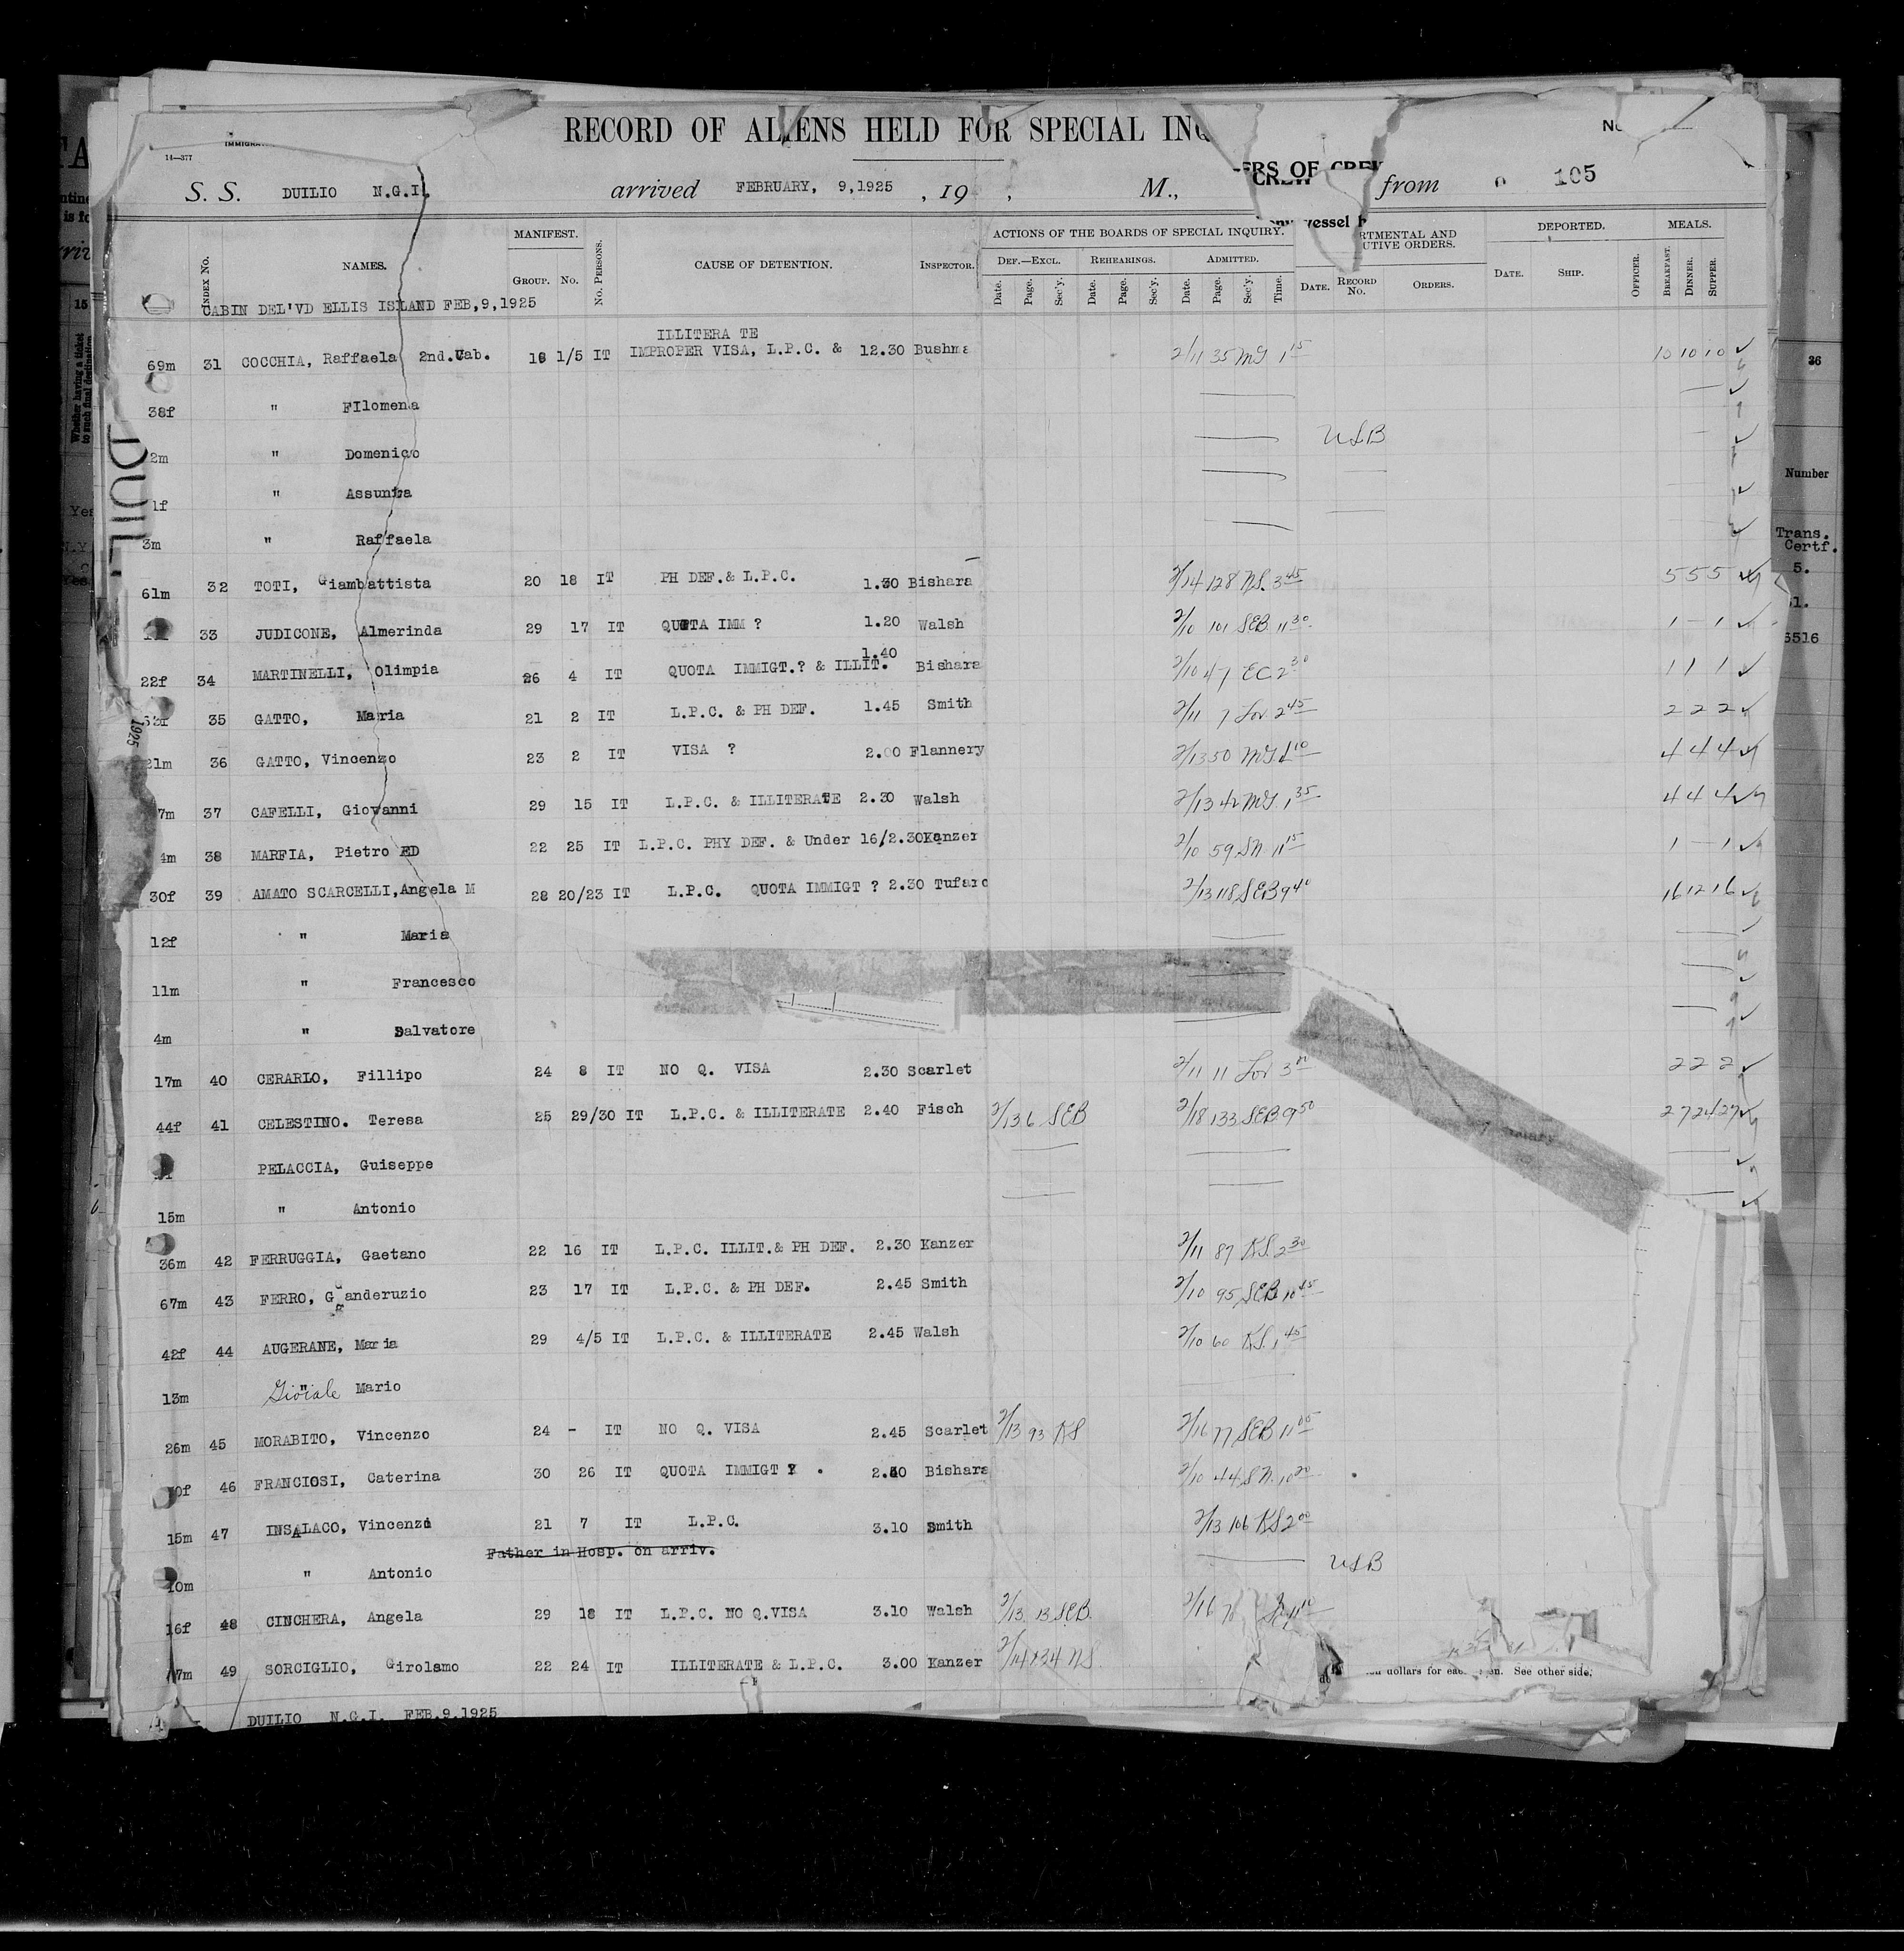 RECORD OF ALIENS HELD FOR SPECIAL INQ
14—377
S. S. DUILIO N.G.I. arrived FEBRUARY, 9,1925, 19 , M., from 105
MANIFEST. ACTIONS OF THE BOARDS OF SPECIAL INQUIRY. DEPORTED. MEALS.
Index No. NAMES. Group. No. No. Persons. CAUSE OF DETENTION. Inspector. Def.—Excl. Rehearings. Admitted. Date. Record No. Orders. Date. Ship. Officer. Breakfast. Dinner. Supper.
Date. Page. Sec'y. Date. Page. Sec'y. Date. Page. Sec'y. Time.
CABIN DEL'VD ELLIS ISLAND FEB,9,1925
ILLITERA TE
69m 31 COCCHIA, Raffaela 2nd.Cab. 18 1/5 IT IMPROPER VISA, L.P.C. & 12.30 Bushma 2/11 35 MG 1 15 10 10 10
38f " FIlomena
2m " Domenico USB
1f " Assunta
3m " Raffaela
61m 32 TOTI, Giambattista 20 18 IT PH DEF.& L.P.C. 1.30 Bishara 2/14 128 N.S. 3 45 5 5 5
33 JUDICONE, Almerinda 29 17 IT QUOTA IMM ? 1.20 Walsh 2/10 101 SEB 11 30 1 - 1
22f 34 MARTINELLI, Olimpia 26 4 IT QUOTA IMMIGT.? & ILLIT. 1.40 Bishara 2/10 47 EC 2 30 1 1 1
35 GATTO, Maria 21 2 IT L.P.C. & PH DEF. 1.45 Smith 2/11 7 Lov 2 45 2 2 2
21m 36 GATTO, Vincenzo 23 2 IT VISA ? 2.00 Flannery 2/13 50 MG 1 10 4 4 4
7m 37 CAFELLI, Giovanni 29 15 IT L.P.C. & ILLITERATE 2.30 Walsh 2/13 42 MG. 1 35 4 4 4
4m 38 MARFIA, Pietro ED 22 25 IT L.P.C. PHY DEF. & Under 16/2.30 Kanzer 2/10 59 SN 11 15 1 - 1
30f 39 AMATO SCARCELLI,Angela M 28 20/23 IT L.P.C. QUOTA IMMIGT ? 2.30 Tufaro 2/13 118 SEB 9 40 16 12 16
12f " Maria
11m " Francesco
4m " Salvatore
17m 40 CERARLO, Fillipo 24 8 IT NO Q. VISA 2.30 Scarlet 2/11 11 Lov 3 00 2 2 2
44f 41 CELESTINO. Teresa 25 29/30 IT L.P.C. & ILLITERATE 2.40 Fisch 2/13 6 SEB 2/18 133 SEB 9 50 27 24 27
PELACCIA, Guiseppe
15m " Antonio
36m 42 FERRUGGIA, Gaetano 22 16 IT L.P.C. ILLIT.& PH DEF. 2.30 Kanzer 2/11 87 KS. 2 30
67m 43 FERRO, G anderuzio 23 17 IT L.P.C. & PH DEF. 2.45 Smith 2/10 95 SEB 10 45
42f 44 AUGERANE, Maria 29 4/5 IT L.P.C. & ILLITERATE 2.45 Walsh 2/10 60 KS. 1 45
13m " Gioiale Mario
26m 45 MORABITO, Vincenzo 24 - IT NO Q. VISA 2.45 Scarlet 2/13 93 KS 2/16 77 SEB 11 05
0f 46 FRANCIOSI, Caterina 30 26 IT QUOTA IMMIGT ? . Bishara 2/10 44 SN. 10 20
15m 47 INSALACO, Vincenzi 21 7 IT L.P.C. 3.10 Smith 2/13 106 KS 2 00
Father in Hosp. on arriv.
10m " Antonio USB
16f 48 CINCHERA, Angela 29 18 IT L.P.C. NO Q.VISA 3.10 Walsh 2/13 13 SEB. 2/16
7m 49 SORCIGLIO, Girolamo 22 24 IT ILLITERATE & L.P.C. 3.00 Kanzer 2/14 134 NS.
dollars for each See other side.
DUILIO N.G.I. FEB.9.1925
DUIL
1925
Number
Trans.
Certf.